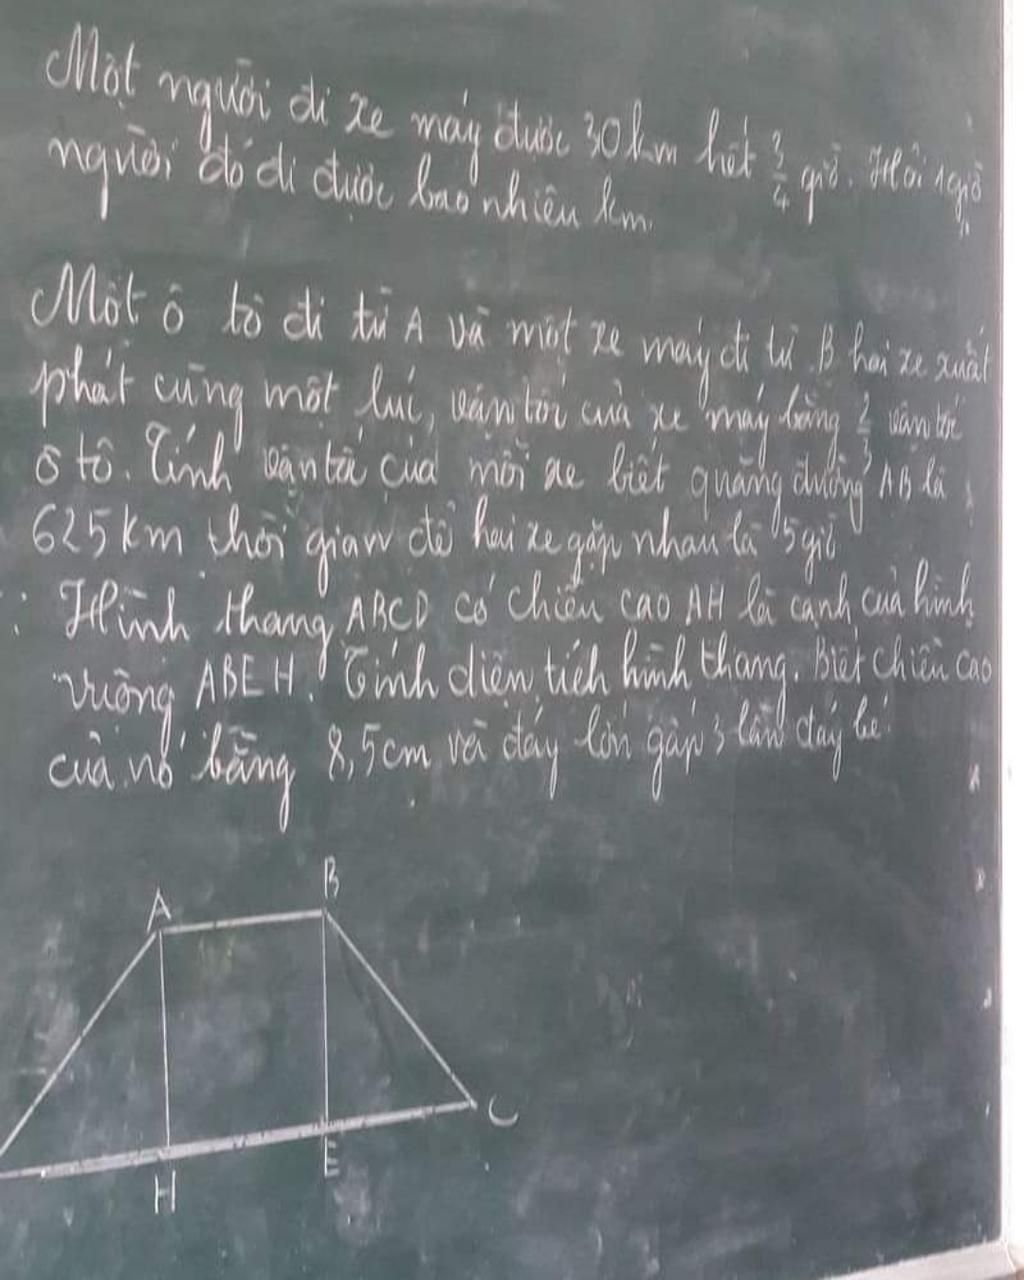 Một người đi xe máy được 30km hết 3/4 giờ. Hỏi 1 giờ
người đó đi được bao nhiêu km.
Một ô tô đi từ A và một xe máy đi từ B hai xe xuất
phát cùng một lúc, vận tốc của xe máy bằng 2/3 vận tốc
ô tô. Tính vận tốc của mỗi xe biết quãng đường AB là
625km thời gian để hai xe gặp nhau là 5 giờ
Hình thang ABCD có chiều cao AH là cạnh của hình
vuông ABEH. Tính diện tích hình thang. Biết chiều cao
của nó bằng 8,5cm và đáy lớn gấp 3 lần đáy bé
A B
C
H E